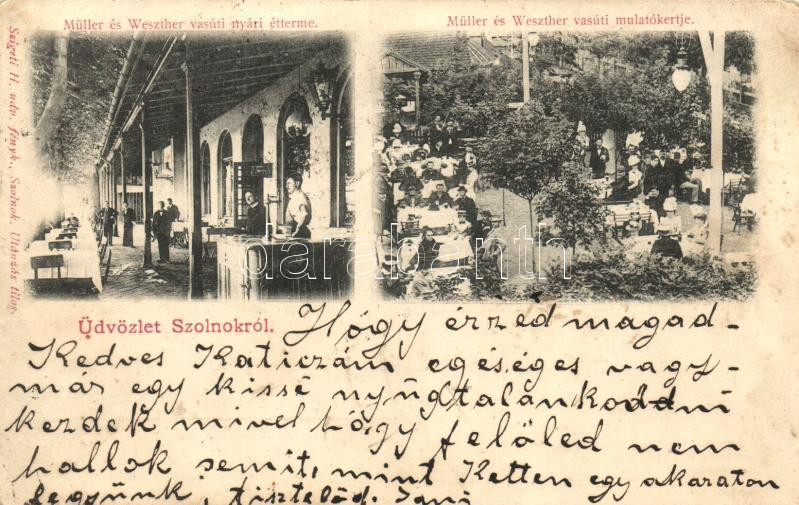 Müller és Weszther vasúti nyári étterme.
Müller és Weszther vasúti mulatókertje.
Szigeti H. udv. fényk., Szolnok. Utánzás tilos.
darabanth
Üdvözlet Szolnokról.
Hógy érzed magad-
Kedves Katiczám egéséges vagy-
már egy kissé nyúgtalankoddni
kezdek mivel hógy felöled nem
hallok semit, mint Ketten egy akaraton
legyünk, tisztelöd. Jani